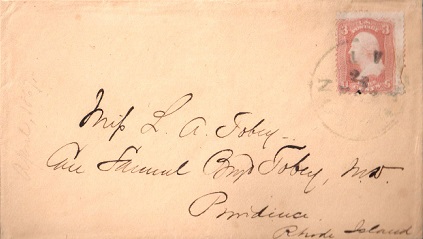 3 3
N
24
Miss L. A. Tobey
Care Samuel Boyd Tobey, M.D.
Providence
Rhode Island